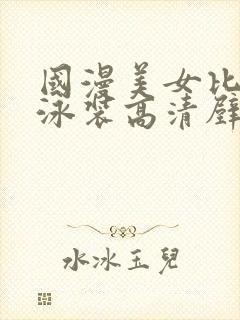 國漫美女比
泳裝高清壁
水冰玉兒